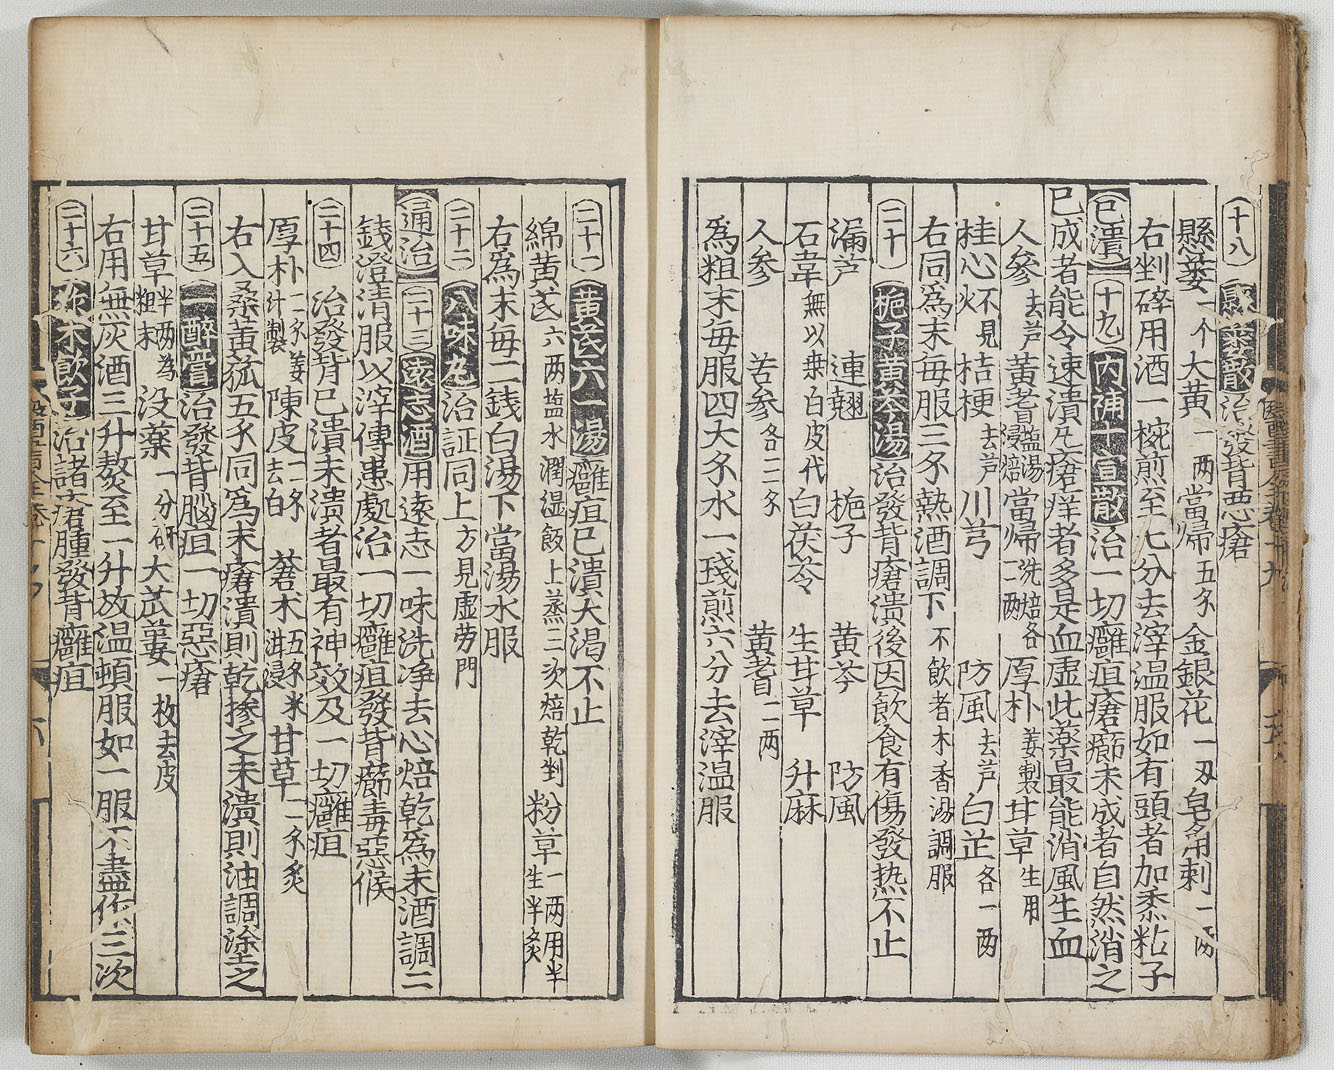 十八 懸蔞散 治發背惡瘡
懸蔞一个 大黄一两 當歸五分 金銀花一刄 皂角刺一两
右剉碎用酒一椀煎至七分去滓温服如有頭者加黍粘子
已潰 十九 内補十宣散 治一切癰疽瘡癤未成者自然消之
已成者能令速潰凡瘡痒者多是血虚此藥最能消風生血
人參去芦 黄耆塩湯浸焙 當歸洗焙各二两 厚朴姜製 甘草生用
桂心不見火 桔梗去芦 川芎 防風去芦 白芷各一两
右同為末每服三分熱酒調下不飲者木香湯調服
二十 梔子黄芩湯 治發背瘡潰後因飲食有傷發热不止
漏芦 連翹 梔子 黄芩 防風
石韋無以桒白皮代 白茯苓 生甘草 升麻
人参 苦参各二分 黄耆二两
為粗末每服四大分水一琖煎六分去滓温服
二十一 黄芪六一湯 癰疽已潰大渴不止
綿黄芪六两塩水潤湿飯上蒸三次焙乾剉 粉草一两用半生半炙
右為末每二錢白湯下當湯水服
二十二 八味丸 治証同上方見虚劳門
通治 二十三 遠志酒 用遠志一味洗净去心焙乾為末酒調二
錢澄清服以滓傅患處治一切癰疽發背癤毒惡候
二十四 治發背已潰未潰者最有神效及一切癰疽
厚朴一分姜汁製 陳皮去白一分 蒼术五分米泔浸 甘草一分炙
右入桑黄菰五分同為末瘡潰則乾摻之未潰則油調塗之
二十五 一醉膏 治發背脳疽一切惡瘡
甘草半两為粗末 没藥一分研 大苽蔞一枚去皮
右用無灰酒三升熬至一升放温頓服如一服不盡作三次
二十六 木飲子 治諸瘡腫發背癰疽